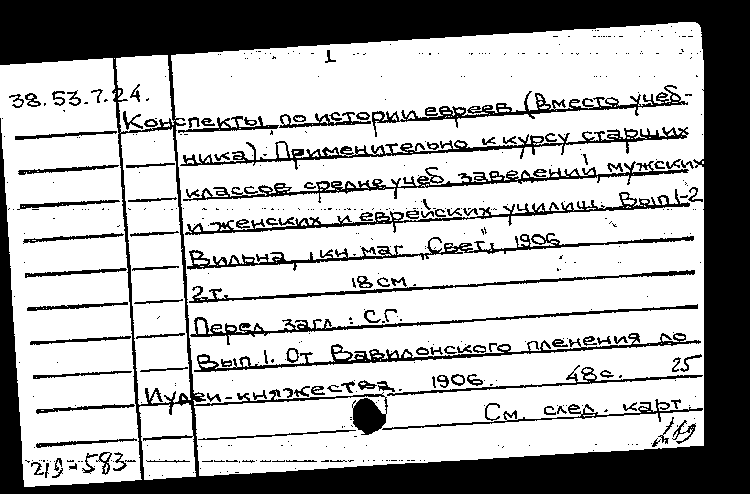 1
38.53.7.24.
Конспекты по истории евреев (Вместо учеб-
ника). Применительно к курсу старших
классов средне учеб. заведений, мужских
и женских и еврейских училищ. Вып 1-2
Вильна, кн. маг. „Свет", 1906
2т. 18 см.
Перед загл.: С.Г.
Вып. 1. От Вавилонского пленения до
Иудеи-княжества. 1906. 48 с. 25
См. след. карт.
219-583